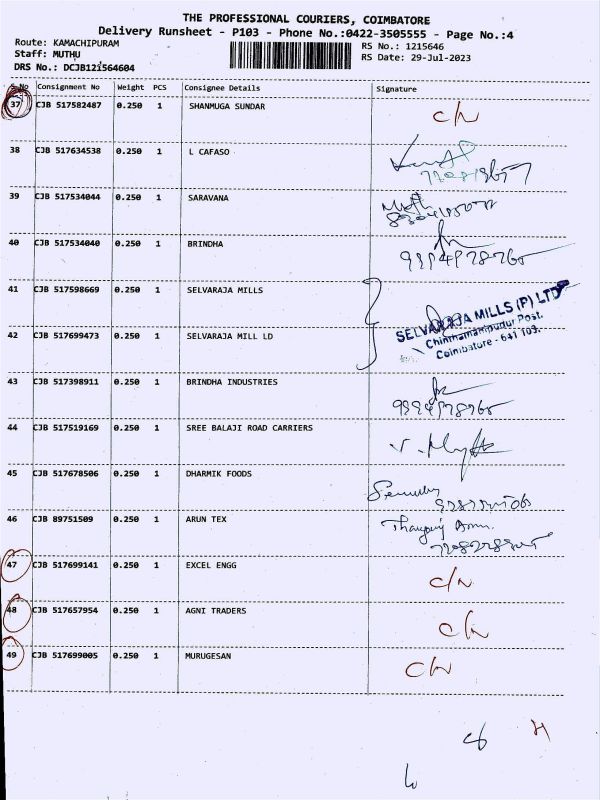 THE PROFESSIONAL COURIERS, COIMBATORE
Delivery Runsheet - P103 - Phone No.:0422-3505555 - Page No.:4
Route: KAMACHIPURAM
Staff: MUTHU
RS No.: 1215646
DRS No.: DCJB121564604
RS Date: 29-Jul-2023
S.No Consignment No Weight PCS Consignee Details Signature
37 CJB 517582487 0.250 1 SHANMUGA SUNDAR
38 CJB 517634538 0.250 1 L CAFASO
39 CJB 517534044 0.250 1 SARAVANA
40 CJB 517534040 0.250 1 BRINDHA
41 CJB 517598669 0.250 1 SELVARAJA MILLS
SELVARAJA MILLS (P) LTD
Chinthamanipudur Post.
Coimbatore - 641 103.
42 CJB 517699473 0.250 1 SELVARAJA MILL LD
43 CJB 517398911 0.250 1 BRINDHA INDUSTRIES
44 CJB 517519169 0.250 1 SREE BALAJI ROAD CARRIERS
45 CJB 517678506 0.250 1 DHARMIK FOODS
46 CJB 89751509 0.250 1 ARUN TEX
47 CJB 517699141 0.250 1 EXCEL ENGG
48 CJB 517657954 0.250 1 AGNI TRADERS
49 CJB 517699005 0.250 1 MURUGESAN